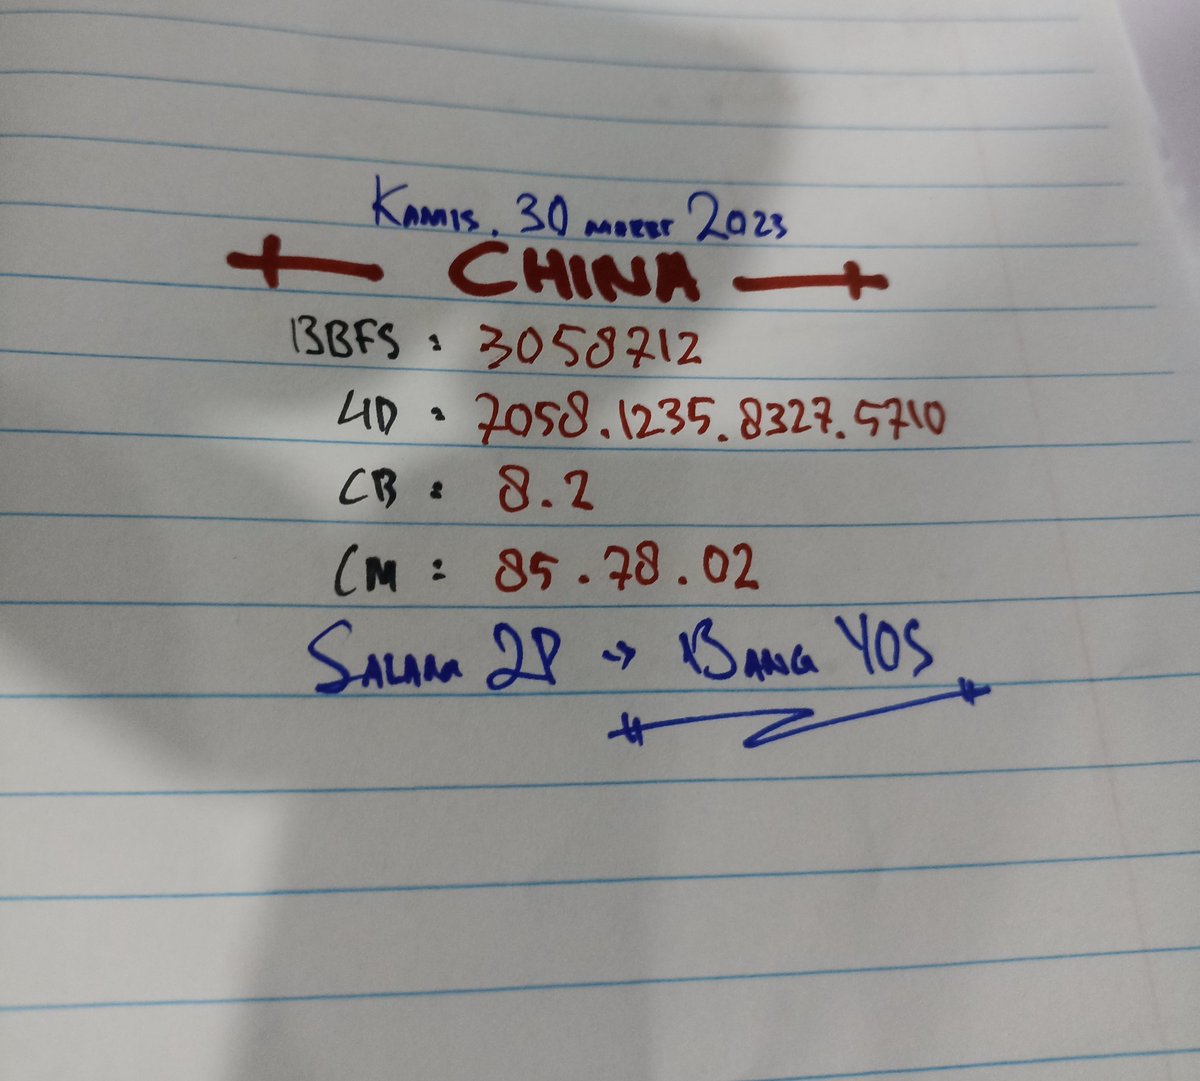 Kamis, 30 Maret 2023
CHINA
BBFS : 3058712
4D : 7058.1235.8327.5710
CB : 8.2
CM : 85.78.02
Salam 2P → Bang YOS